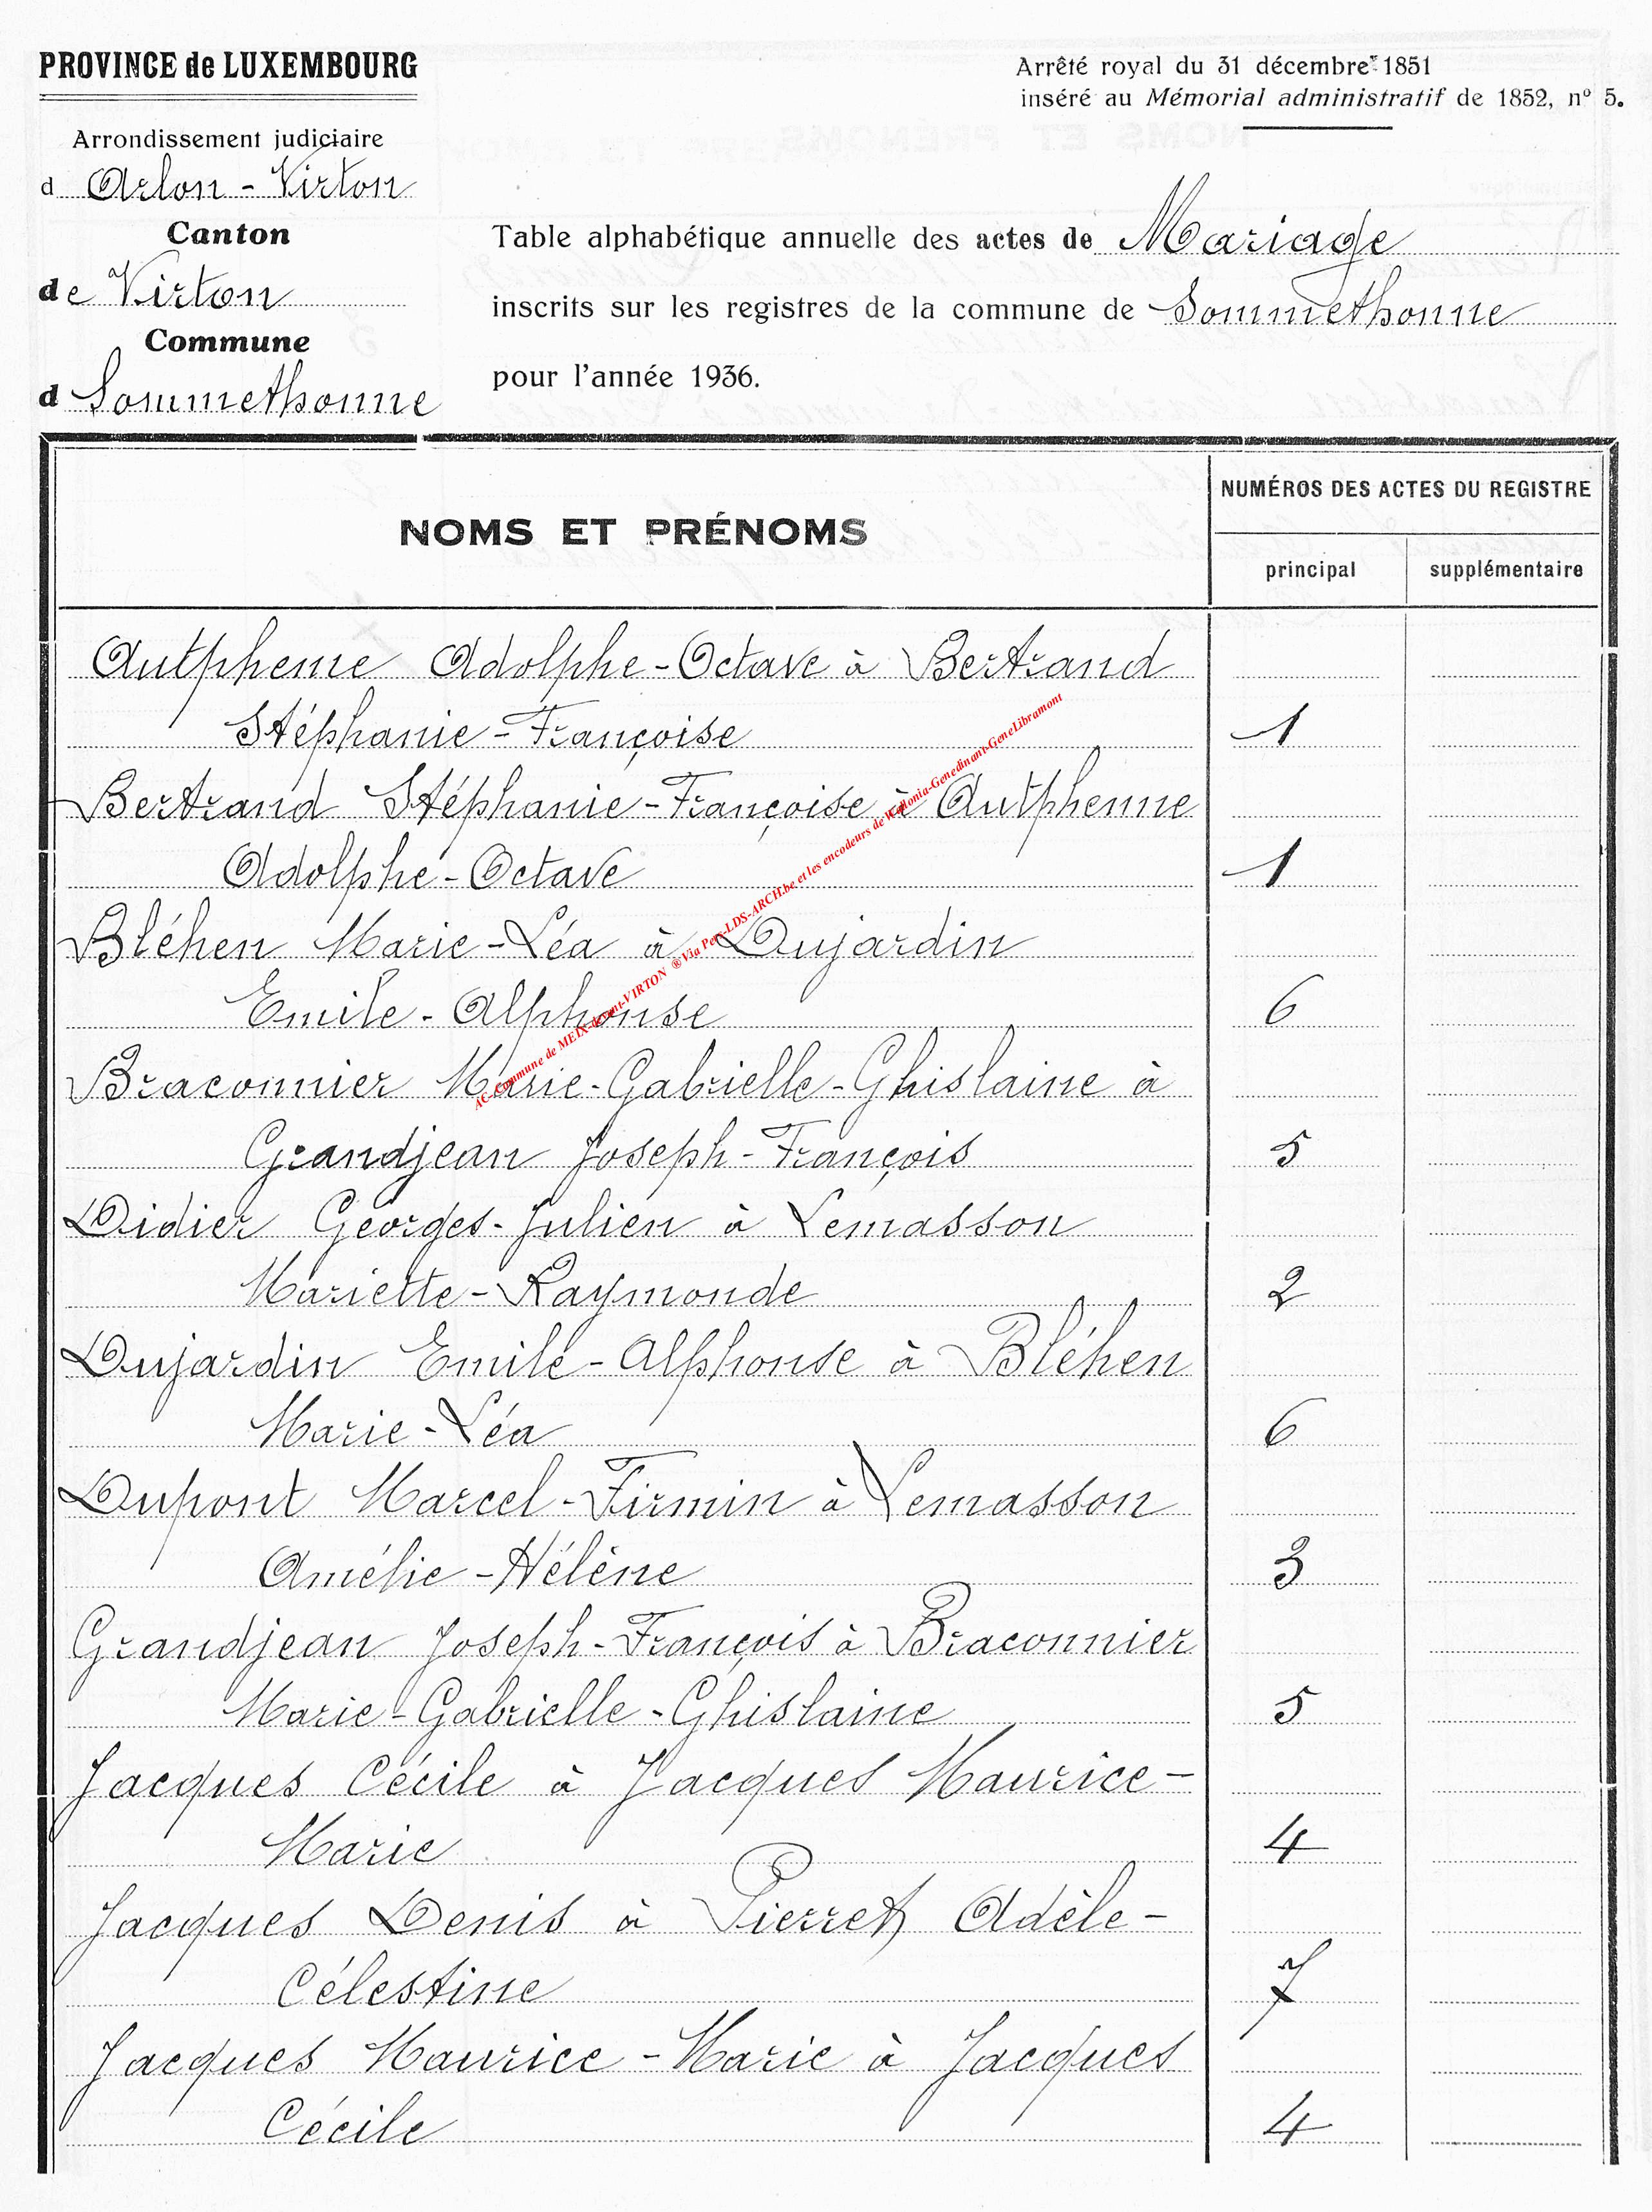 PROVINCE de LUXEMBOURG
Arrondissement judiciaire
d Arlon - Virton
Canton
de Virton
Commune
d Sommethonne
Arrêté royal du 31 décembre 1851
inséré au Mémorial administratif de 1852, nº 5.
Table alphabétique annuelle des actes de Mariage
inscrits sur les registres de la commune de Sommethonne
pour l'année 1936.
NOMS ET PRÉNOMS
NUMÉROS DES ACTES DU REGISTRE
principal supplémentaire
Authphenne Adolphe-Octave à Bertrand
Stéphanie-Françoise 1
Bertrand Stéphanie-Françoise à Authphenne
Adolphe-Octave 1
Bléhen Marie-Léa à Dujardin
Emile-Alphonse 6
Braconnier Marie-Gabrielle-Ghislaine à
Grandjean Joseph-François 5
Didier Georges-Julien à Lemasson
Mariette-Raymonde 2
Dujardin Emile-Alphonse à Bléhen
Marie-Léa 6
Dupont Marcel-Firmin à Lemasson
Amélie-Hélène 3
Grandjean Joseph-François à Braconnier
Marie-Gabrielle-Ghislaine 5
Jacques Cécile à Jacques Maurice-
Marie 4
Jacques Denis à Pierret Adèle-
Célestine 7
Jacques Maurice-Marie à Jacques
Cécile 4
AC Commune de MEIX-devant-VIRTON ® Via Pers-LDS-ARCH.be et les encodeurs de Wallonia-Genedinant-GeneLibramont